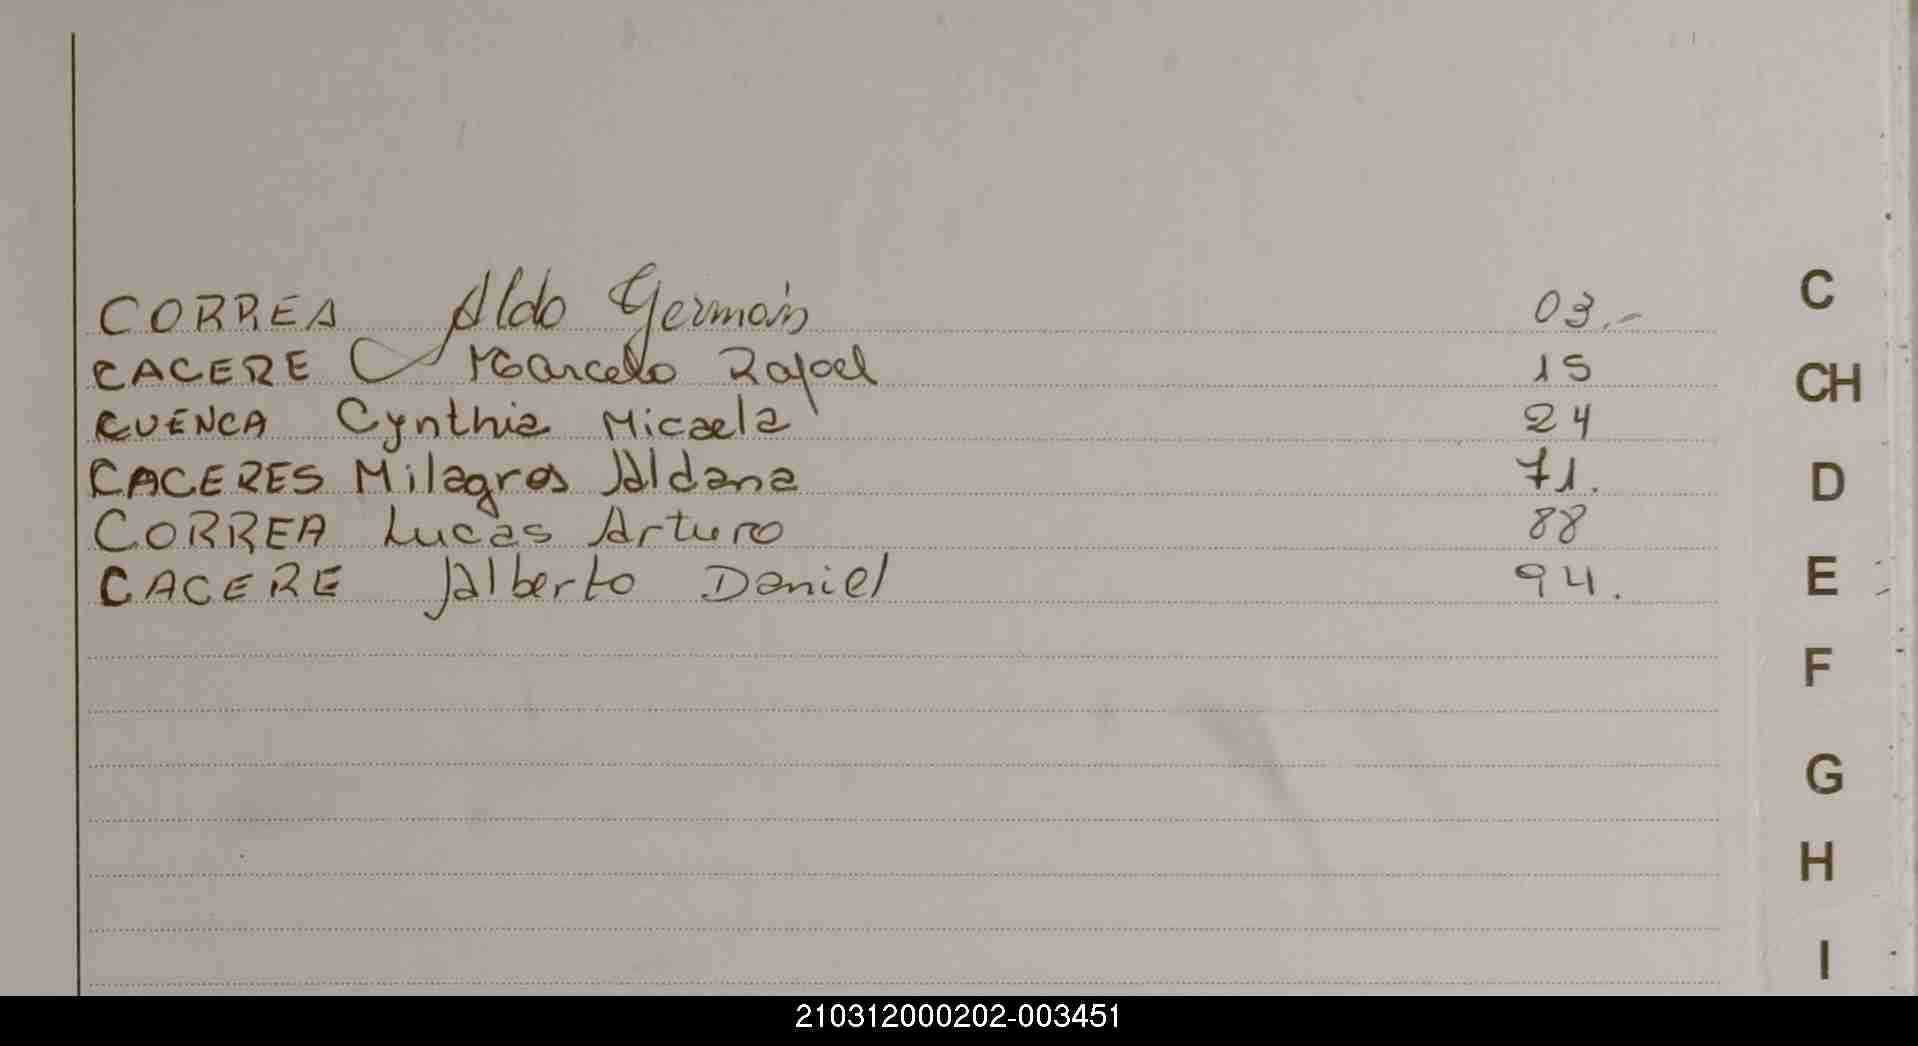 CORREA Aldo Germán 03.-
CACERE Marcelo Rafael 15
CUENCA Cynthia Micaela 24
CACERES Milagros Aldana 71.
CORREA Lucas Arturo 88
CACERE Alberto Daniel 94.
C
CH
D
E
F
G
H
I
210312000202-003451